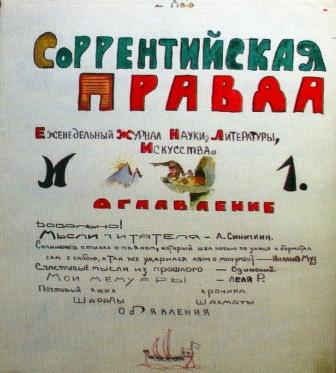 Соррентийская
Правда
Еженедельный Журнал Науки, Литературы,
Искусства.
N 1.
Оглавление
Довольно!
Мысли читателя – А. Синичкин.
Сочинение в стихах о пьяном, который шел ночью по улице и бормотал
сам с собою, а так же ударился лбом о монумент –
Счастливые мысли из прошлого – Одинокий.
Мои мемуары – Леля Р.
Почтовый ящик хроника
Шарады Шахматы
Объявления